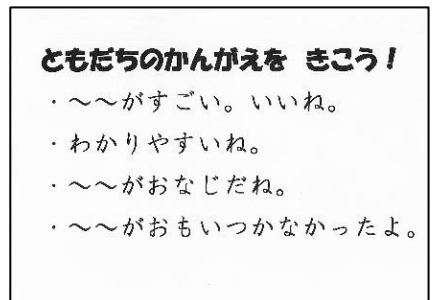 ともだちのかんがえを きこう！
・～～がすごい。いいね。
・わかりやすいね。
・～～がおなじだね。
・～～がおもいつかなかったよ。